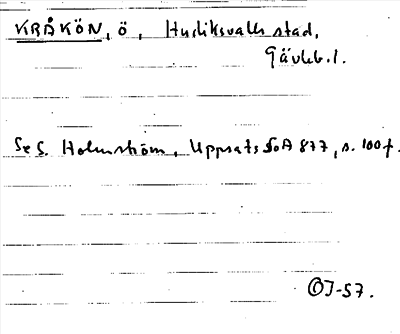 KRÅKÖN, ö, Hudiksvalls stad,
Gävleb. l.
Se S. Holmström, Uppsats SoA 877, s. 100 f.
OJ-57.